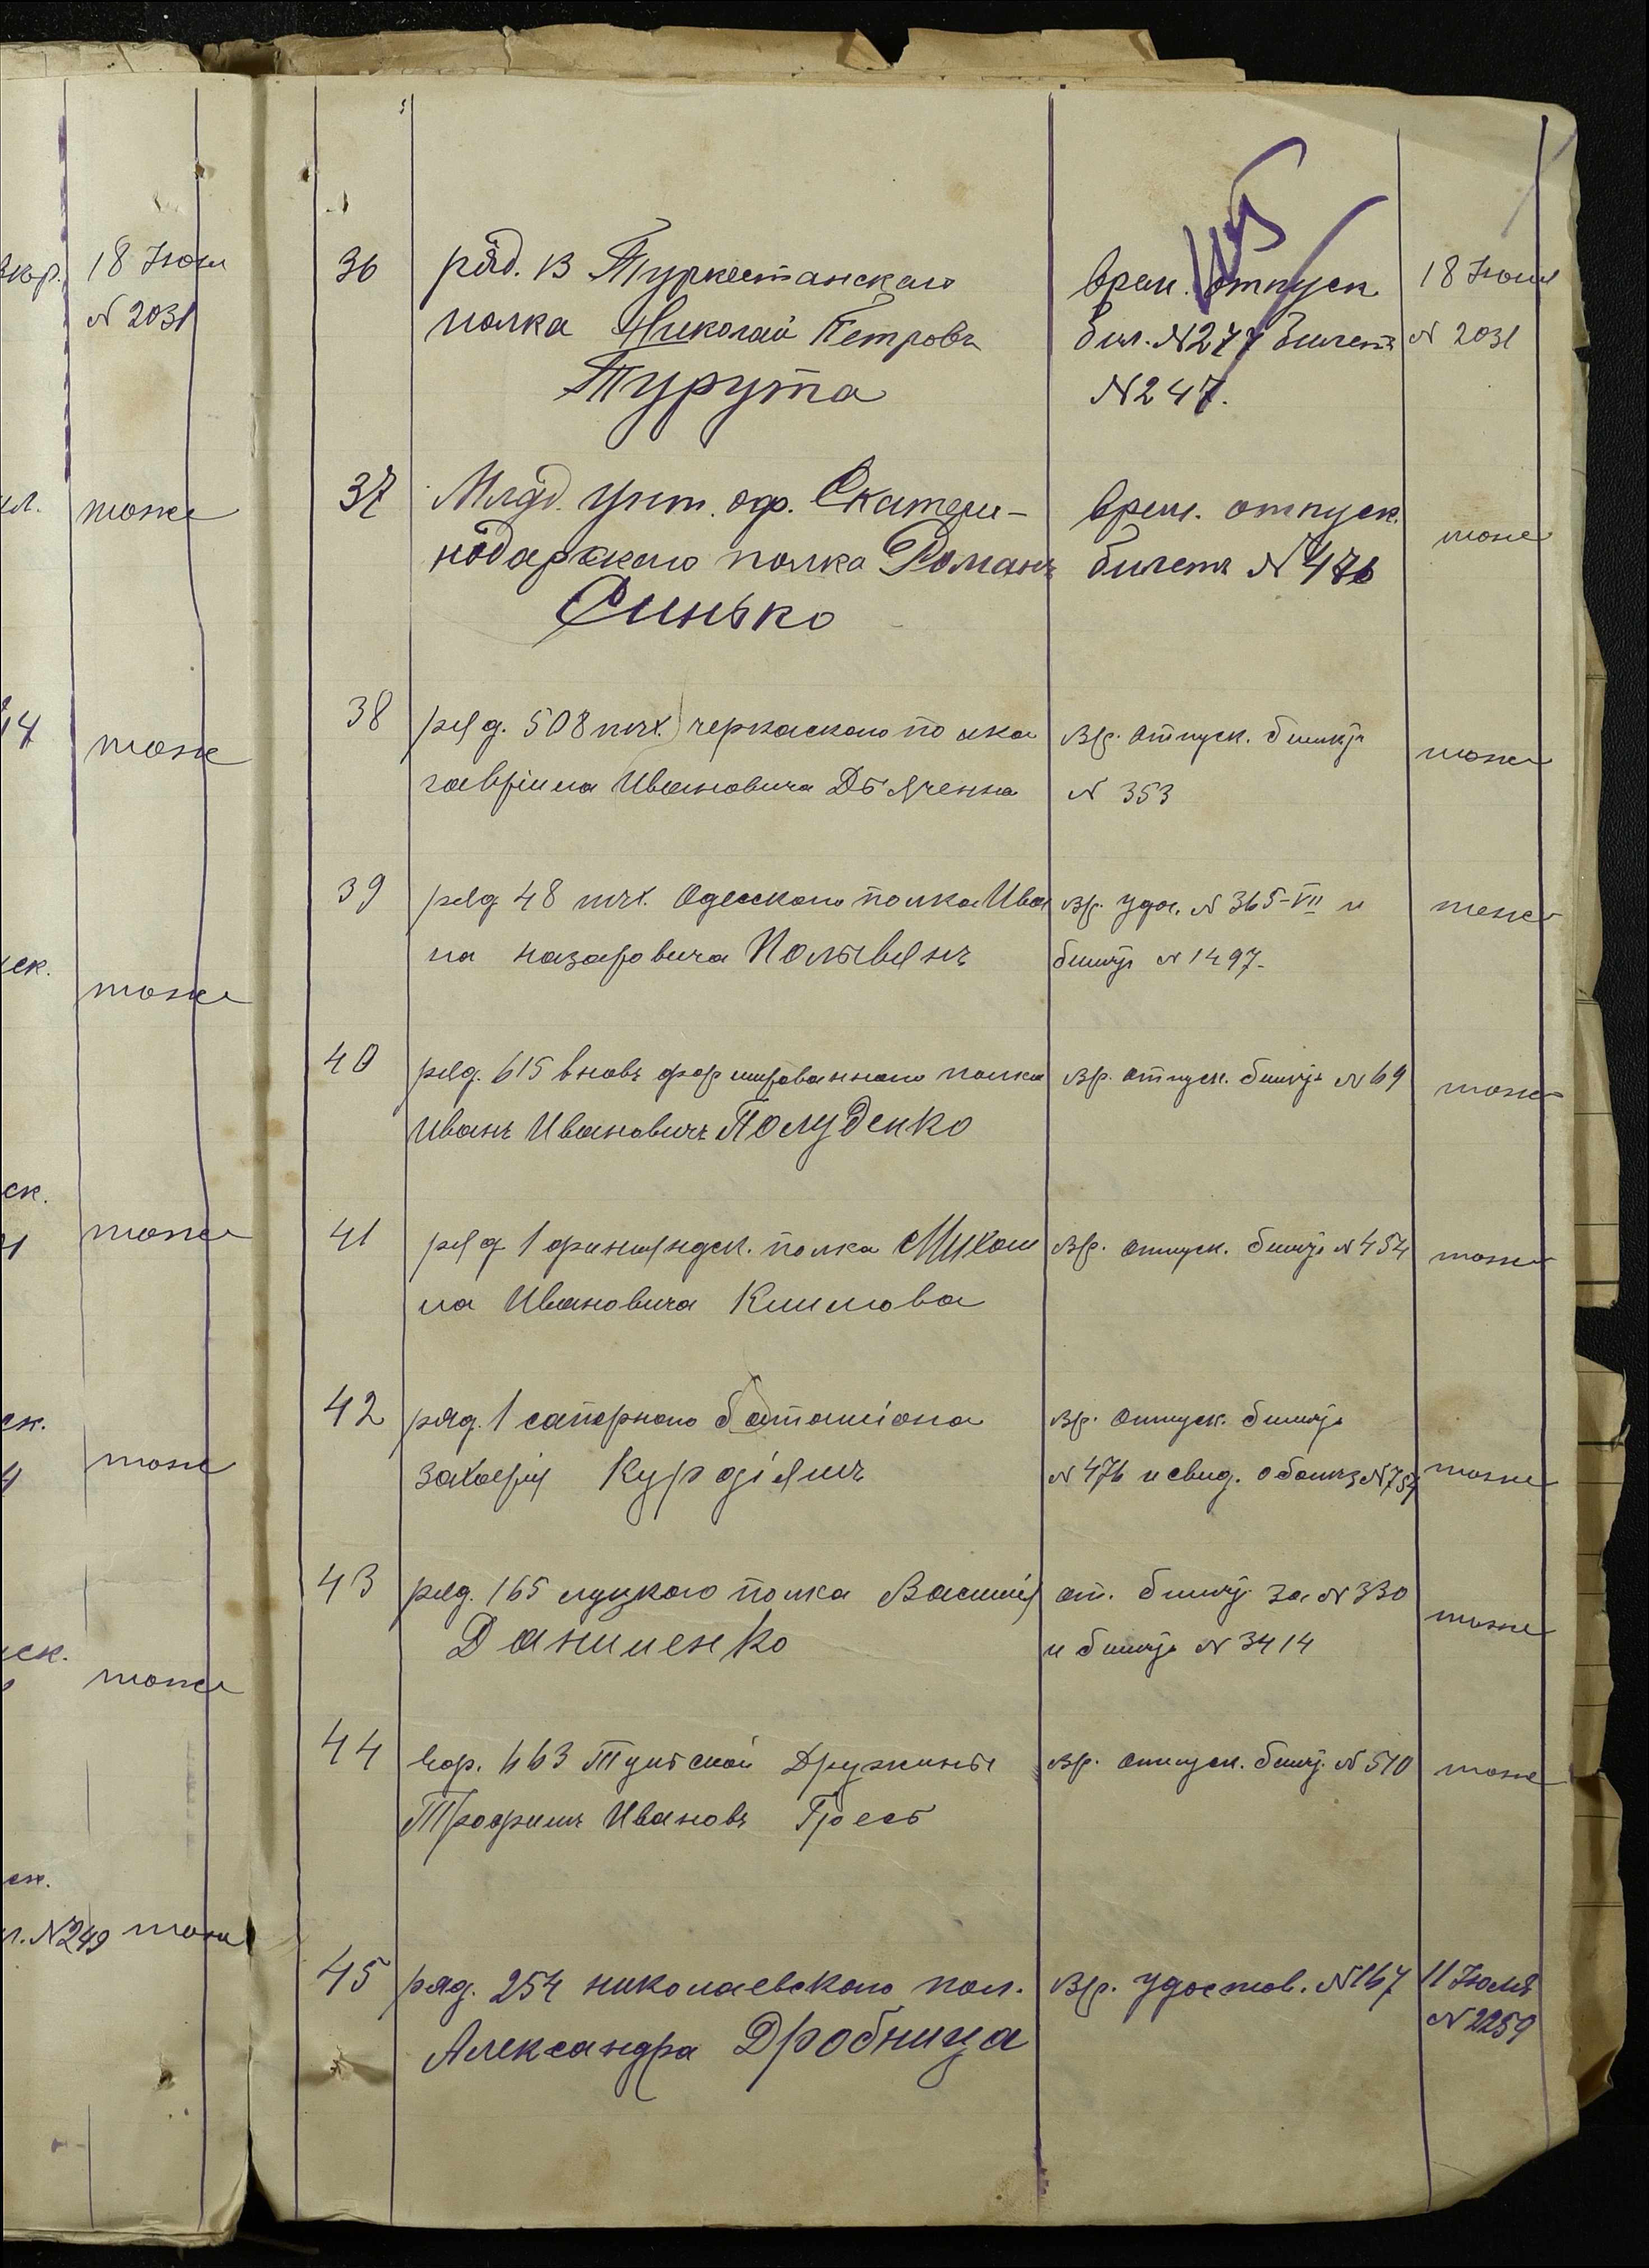 18 Июня
№ 2031
тоже
тоже
тоже
тоже
тоже
тоже
№249 тоже
36 ряд. 13 Туркестанскаго врем. отпуск 18 Июня
полка Николай Петровъ бил. №277 билетъ № 2031
Турута №247.
37 Млад. унт. оф. Екатери- врем. отпуск. тоже
нодарскаго полка Романъ билетъ № 476
Синько
38 ряд. 508 пѣх. черкаского полка вр. отпуск. билетъ тоже
гавріила Ивановича Дьяченка № 353
39 ряд 48 пѣх. Одесскаго полка Ива вр. удос. № 365-VII и тоже
на назаровича Полывянъ билетъ № 1497-
40 ряд. 615 вновь формированнаго полка вр. отпуск. билетъ № 69 тоже
Иванъ Ивановичъ Полуденко
41 ряд 1 финляндск. полка Михаи вр. отпуск. билетъ № 454 тоже
ла Ивановича Климова
42 ряд. 1 саперного баталіона вр. отпуск. билетъ
захарія № 476 и свид. о болѣз №754 тоже
43 ряд. 165 луцкаго полка Василія от. билетъ за № 330 тоже
Даниленко и билетъ № 3414
44 ефр. 663 Тульской Дружины вр. отпуск. билет. № 510 тоже
Трофимъ Ивановъ
45 ряд. 254 николаевскаго пол. вр. удостов. №167 11 Июля
Александра Дробница № 2259